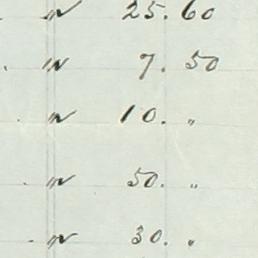 " 25. 60
. " 7. 50
. " 10. "
. " 50. "
. " 30. "